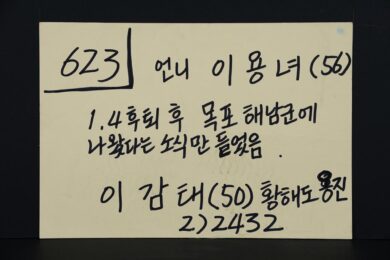 623 언니 이용녀(56)
1.4후퇴 후 목포 해남군에
나왔다는 소식만 들었음.
이감태(50) 황해도 옹진
2)2432